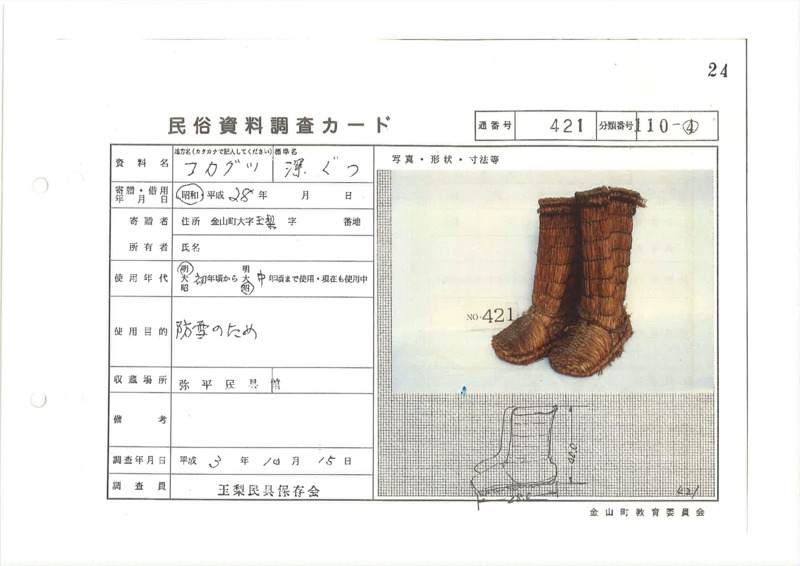 24
民俗資料調査カード
通番号 421 分類番号 110-④
資料名 地方名(カタカナで記入してください) 標準名
フカグツ 深ぐつ
寄贈・借用年月日 昭和・平成 28年 月 日
寄贈者 住所 金山町大字玉梨 字 番地
所有者 氏名
使用年代 明大昭 初年頃から 明大昭 中年頃まで使用・現在も使用中
使用目的 防雪のため
収蔵場所 弥平民具館
備考
調査年月日 平成 3年 10月 15日
調査員 玉梨民具保存会
写真・形状・寸法等
NO-421
40.0
28.0
421
金山町教育委員会